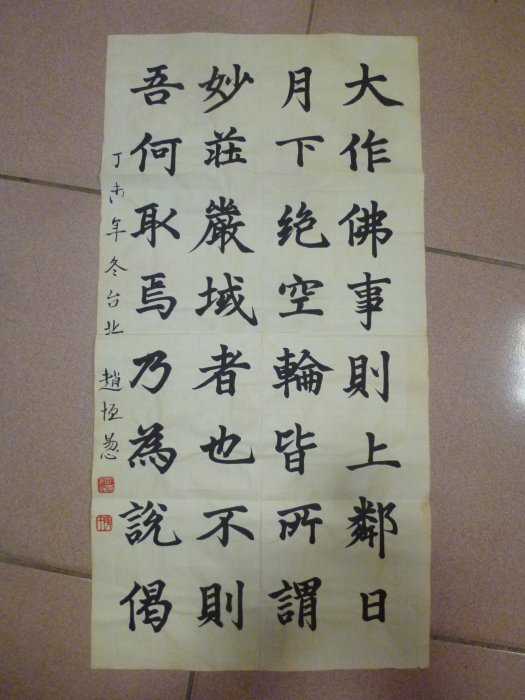 大作佛事則上鄰日
月下绝空輪皆所謂
妙莊嚴域者也不則
吾何取焉乃為說偈
丁未年冬台北 趙恒